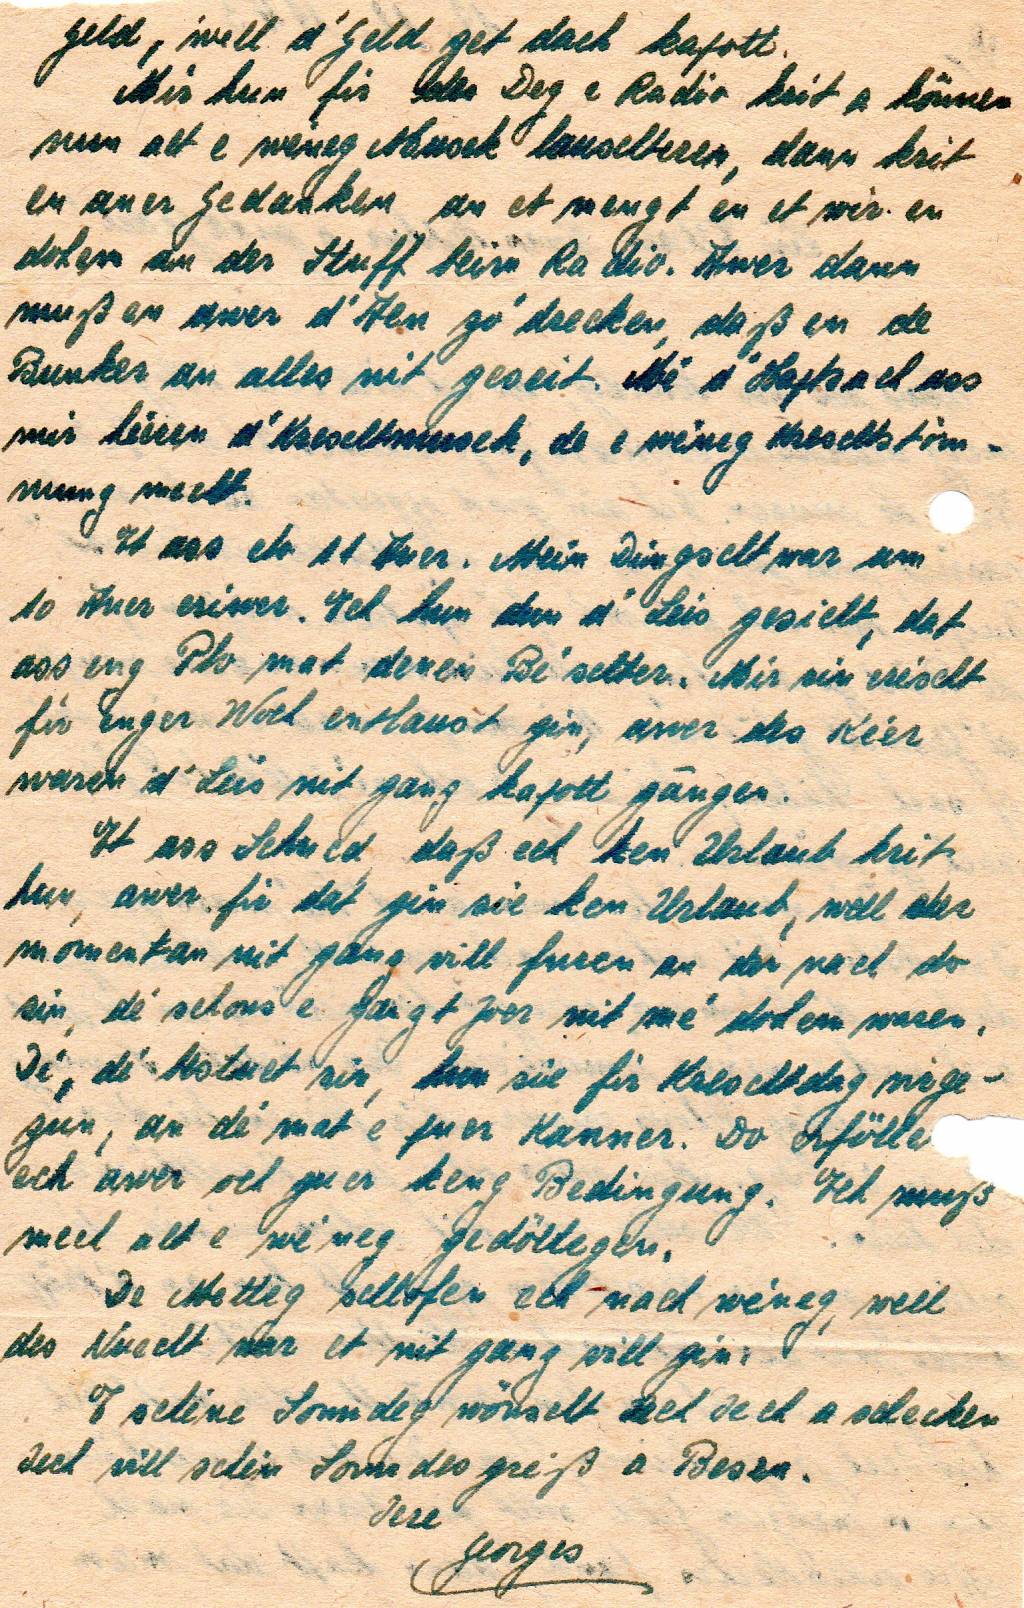 Geld, well d'Geld get dach kapott.
Mir hun fir Deg e Radio krit a können
nun alt e wéneg Musek lauschteren, dann krit
en aner Gedanken an et mengt en et wir en
dohem an der Stuff beim Radio. Awer dann
muß en awer d'Aen zo'drecken, daß en de
Bunker an alles nit geseit. Mé d'Haptsach ass
mir héieren d'Kreschtmusek, de e wéneg Kreschtstöm-
mung mecht.
Et ass elo 11 Auer. Mein Dingscht war um
10 Auer eriwer. Ech hun dun d'Leis gesicht, dat
ass eng Plo mat denen Bé'schter. Mir sin eréischt
fir enger Woch entlaust gin, awer des Kéier
waren d'Leis nit ganz kapott gängen.
Et ass Schued, daß ech ken Urlaub krit
hun, awer fir dat gin sie ken Urlaub, well der
momentan nit ganz vill fueren an der nach do
sin, dé schons e ganzt Joer nit mé dohem waren.
Dé, dé bestuet sin, hun sie fir Kreschtdag virge-
zun, an dé mat e puer Kanner. Do erfölle
ech awer och guer keng Bedingung. Ech muß
mech alt e wéneg gedöllegen.
De Mëtteg schlofen ech nach wéneg, well
des Nuecht war et nit ganz vill gin.
E schéne Sonndeg wönscht ech Iech a schecken
Iech vill schéin Sonndesgreiß a Besen.
Iere
Georges